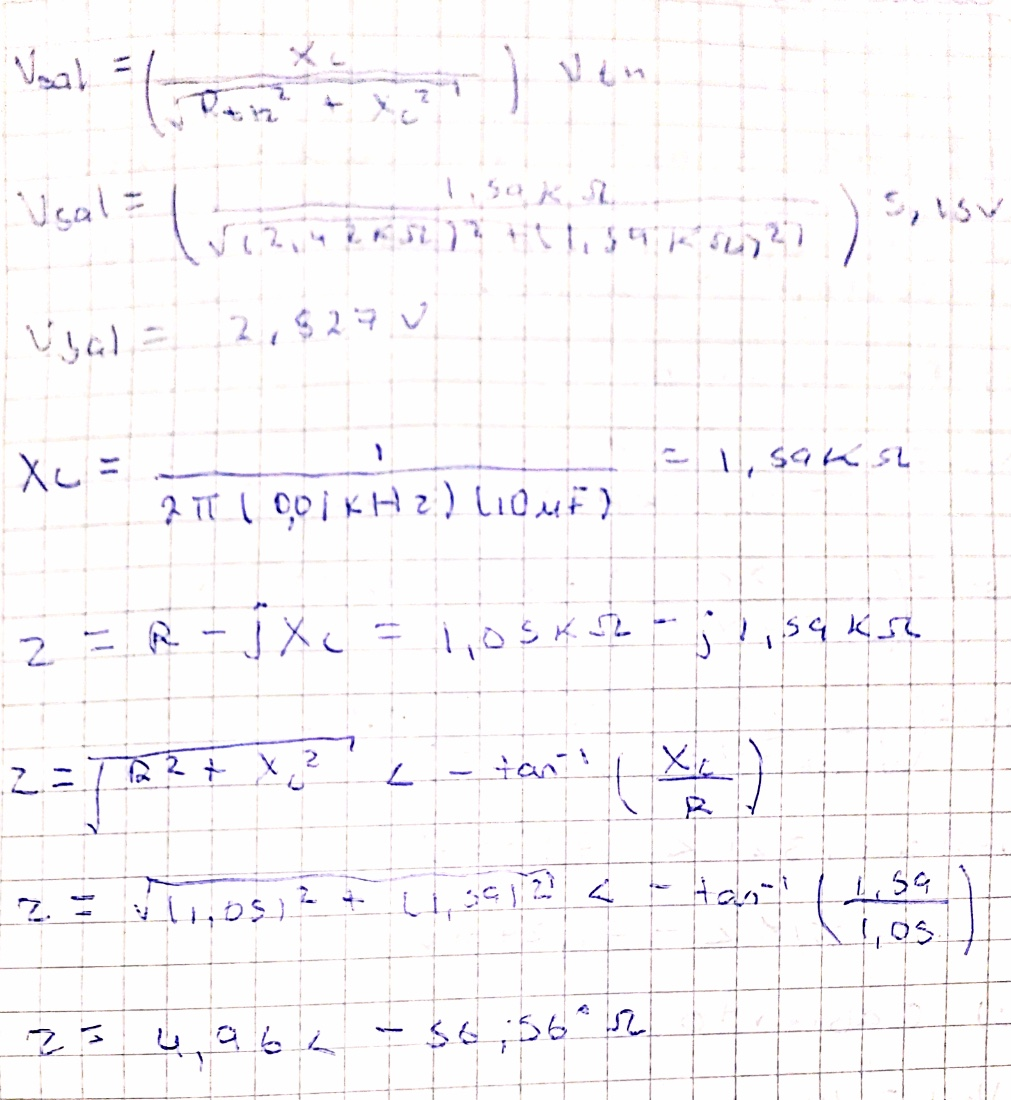 Vsal = (Xc / √(Rth² + Xc²)) Ven
Vsal = (1,59KΩ / √((2,42KΩ)² + (1,59KΩ)²)) 5,15V
Vsal = 2,827 V
Xc = 1 / 2π(0,01KHz)(10μF) = 1,59KΩ
Z = R - jXc = 1,05KΩ - j1,59KΩ
Z = √(R² + Xc²) < - tan⁻¹ (Xc / R)
Z = √((1,05)² + (1,59)²) < - tan⁻¹ (1,59 / 1,05)
Z = 4,96 < - 56,56° Ω